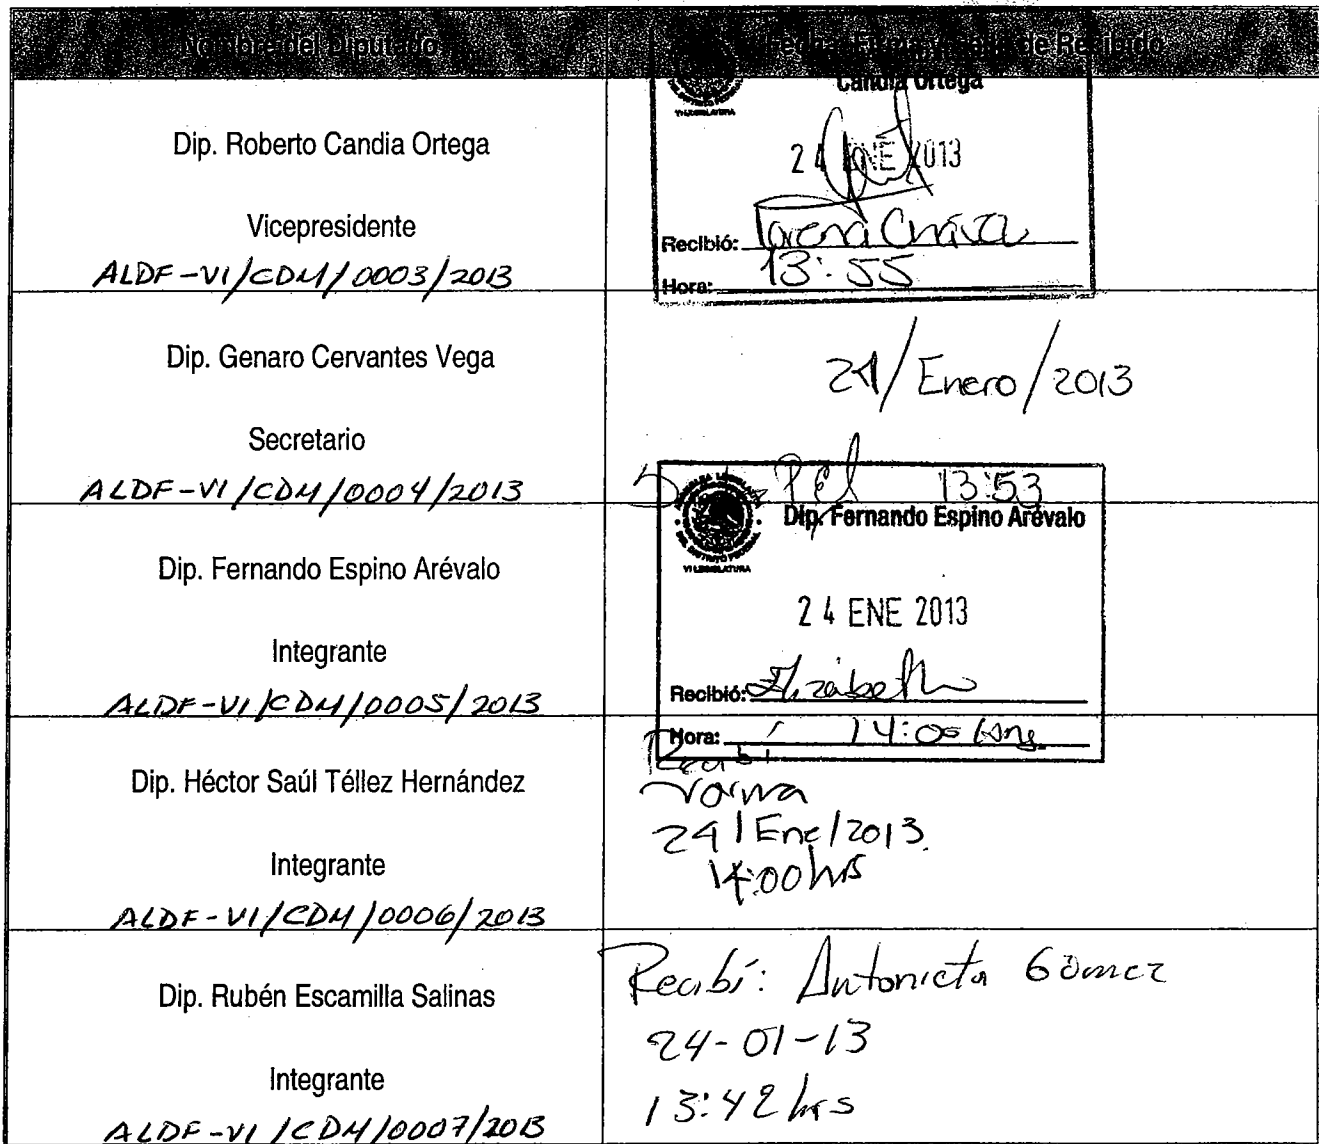 Nombre del Diputado
de Recibido
Dip. Roberto Candia Ortega
Vicepresidente
ALDF-VI/CDM/0003/2013
Candia Ortega
VI LEGISLATURA
24 ENE 2013
Recibió:
Hora: 13:55
Dip. Genaro Cervantes Vega
Secretario
ALDF-VI/CDM/0004/2013
24/Enero/2013
13:53
Dip. Fernando Espino Arévalo
Integrante
ALDF-VI/CDM/0005/2013
Dip. Fernando Espino Arévalo
VI LEGISLATURA
24 ENE 2013
Recibió: Elizabeth
Hora: 14:00 hrs.
Dip. Héctor Saúl Téllez Hernández
Integrante
ALDF-VI/CDM/0006/2013
Recibí
24/Ene/2013.
14:00 hrs
Dip. Rubén Escamilla Salinas
Integrante
ALDF-VI/CDM/0007/2013
Recibí: Antonieta Gómez
24-01-13
13:42 hrs